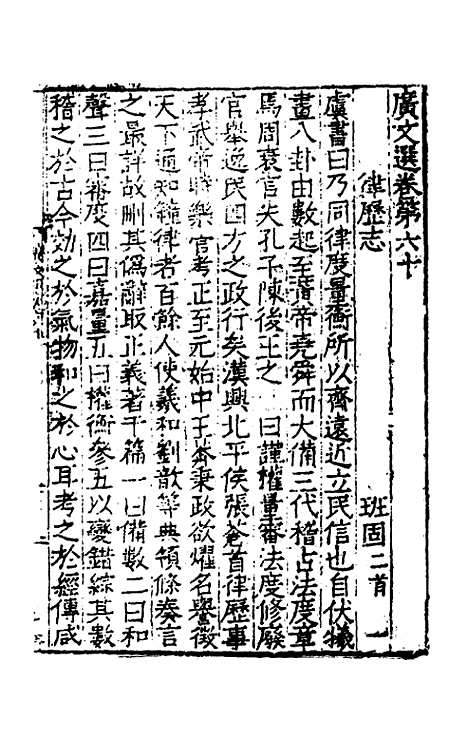 廣文選卷第六十
律歷志 班固二首
虞書曰乃同律度量衡所以齊遠近立民信也自伏犧
畫八卦由數起至黃帝堯舜而大備三代稽古法度章
焉周衰官失孔子陳後王之 曰謹權量審法度修廢
官舉逸民四方之政行矣漢興北平侯張蒼首律歷事
孝武帝時樂官考正至元始中王莽秉政欲耀名譽徵
天下通知鐘律者百餘人使羲和劉歆等典領條奏言
之最詳故刪其偽辭取正義著于篇一曰備數二曰和
聲三曰審度四曰嘉量五曰權衡參五以變錯綜其數
稽之於古今効之於氣物和之於心耳考之於經傳咸